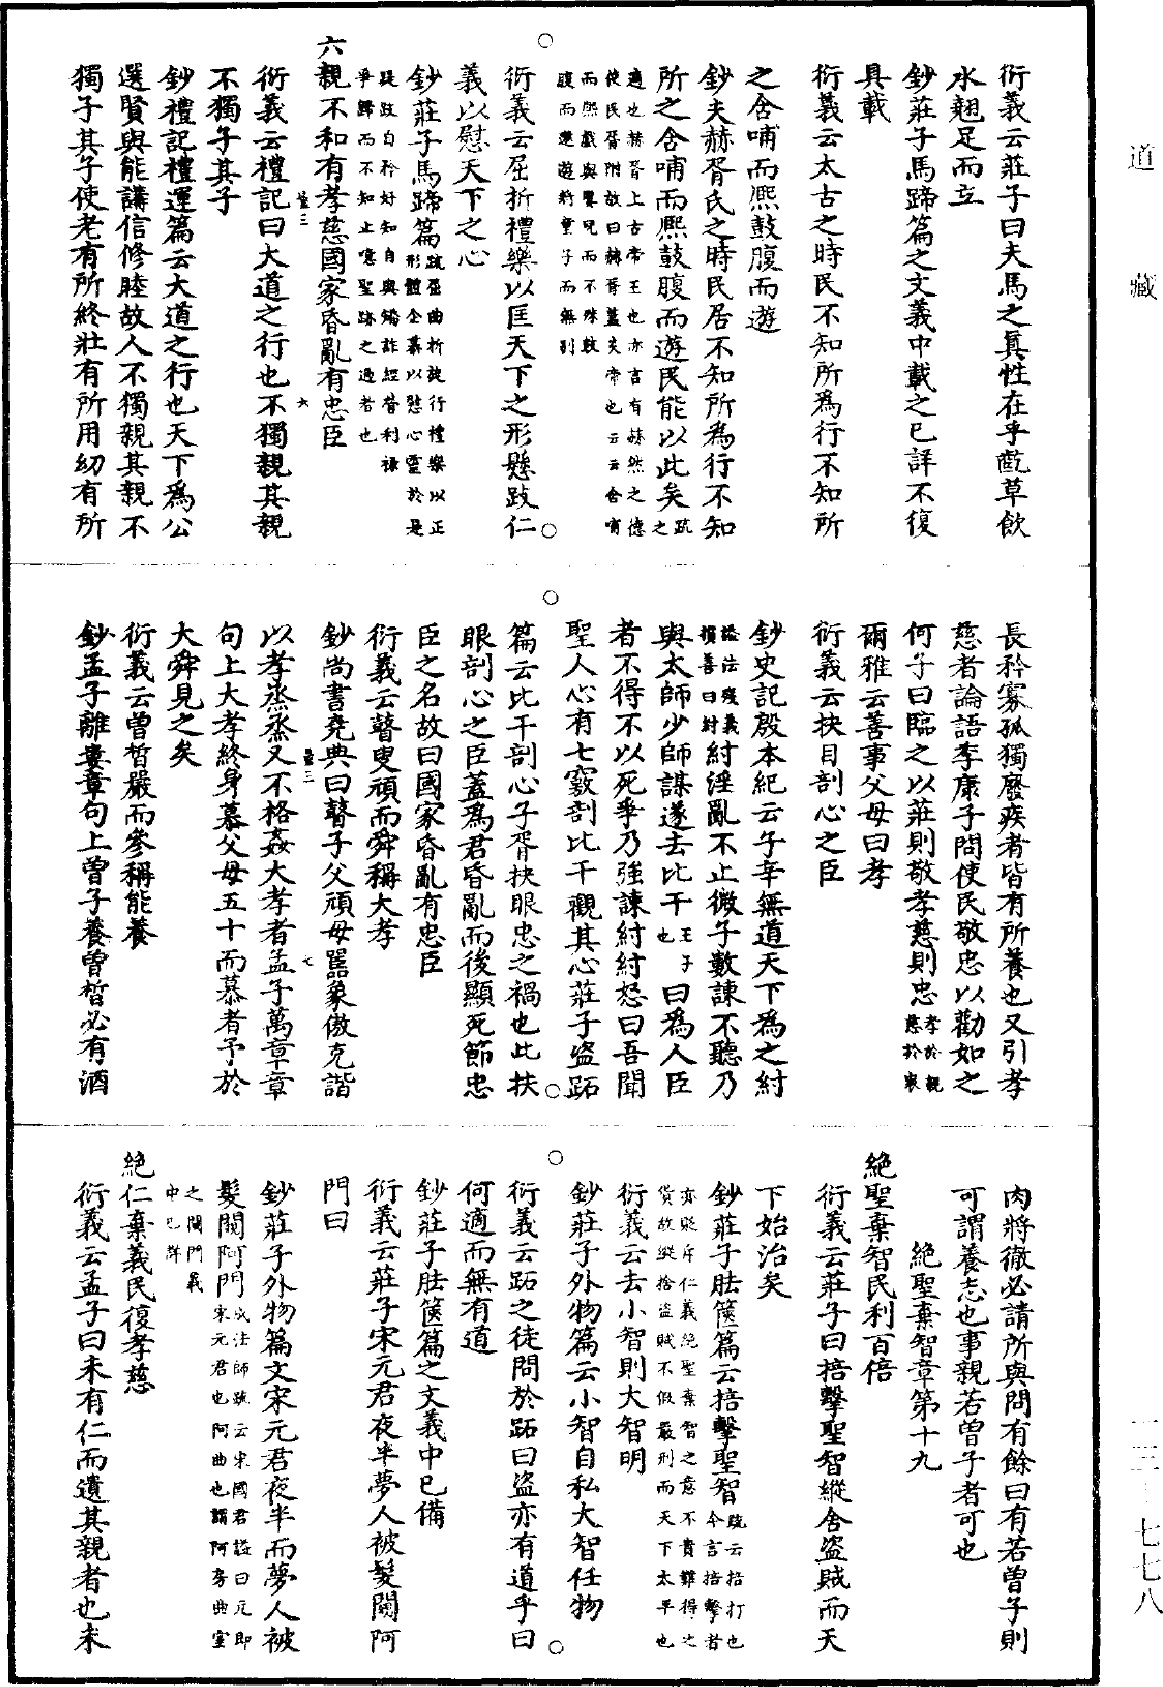 道藏
一三—七七八
衍義云莊子曰夫馬之真性在乎齕草飲
水翹足而立
鈔莊子馬蹄篇之文義中載之已詳不復
具載
衍義云太古之時民不知所爲行不知所
之含哺而熈鼓腹而遊
鈔夫赫胥氏之時民居不知所為行不知
所之含哺而熈鼓腹而遊民能以此矣疏之
適也赫胥上古帝王也亦言有赫然之德
使民胥附故曰赫胥蓋炎帝也云云含哺
而熈戲與鷇兒而不殊鼓
腹而遨遊將童子而無別
衍義云屈折禮樂以匡天下之形懸跂仁
義以慰天下之心
鈔莊子馬蹄篇疏屈曲折旋行禮樂以正
形體企慕以慰心靈於是
踶跂自矜好知自與矯詐經營利祿
爭歸而不知止噫聖跡之過者也
六親不和有孝慈國家昏亂有忠臣
衍義云禮記曰大道之行也不獨親其親
不獨子其子
鈔禮記禮運篇云大道之行也天下爲公
選賢與能講信修睦故人不獨親其親不
獨子其子使老有所終壯有所用幼有所
長矜寡孤獨廢疾者皆有所養也又引孝
慈者論語季康子問使民敬忠以勸如之
何子曰臨之以莊則敬孝慈則忠孝於親
慈於衆
爾雅云善事父母曰孝
衍義云抉目剖心之臣
鈔史記殷本紀云子辛無道天下為之紂
謚法殘義
損善曰紂紂淫亂不止微子數諫不聽乃
與太師少師謀遂去比干王子
也曰爲人臣
者不得不以死爭乃強諫紂紂怒曰吾聞
聖人心有七竅剖比干觀其心莊子盜跖
篇云比干剖心子胥抉眼忠之禍也此抉
眼剖心之臣蓋爲君昏亂而後顯死節忠
臣之名故曰國家昏亂有忠臣
衍義云瞽叟頑而舜稱大孝
鈔尚書堯典曰瞽子父頑母嚚象傲克諧
以孝烝烝乂不格姦大孝者孟子萬章章
句上大孝終身慕父母五十而慕者予於
大舜見之矣
衍義云曾皙嚴而參稱能養
鈔孟子離婁章句上曾子養曾皙必有酒
肉將徹必請所與問有餘曰有若曾子則
可謂養志也事親若曾子者可也
絶聖棄智章第十九
絶聖棄智民利百倍
衍義云莊子曰掊擊聖智縱舍盜賊而天
下始治矣
鈔莊子胠篋篇云掊擊聖智疏云掊打也
今言掊擊者
亦貶斥仁義絶聖棄智之意不貴難得之
貨故縱捨盜賊不假嚴刑而天下太平也
衍義云去小智則大智明
鈔莊子外物篇云小智自私大智任物
衍義云跖之徒問於跖曰盜亦有道乎曰
何適而無有道
鈔莊子胠篋篇之文義中已備
衍義云莊子宋元君夜半夢人被髮闚阿
門曰
鈔莊子外物篇文宋元君夜半而夢人被
髮闚阿門成法師疏云宋國君謚曰元即
宋元君也阿曲也謂阿旁曲室
之闚門義
中已詳
絶仁棄義民復孝慈
衍義云孟子曰未有仁而遺其親者也未